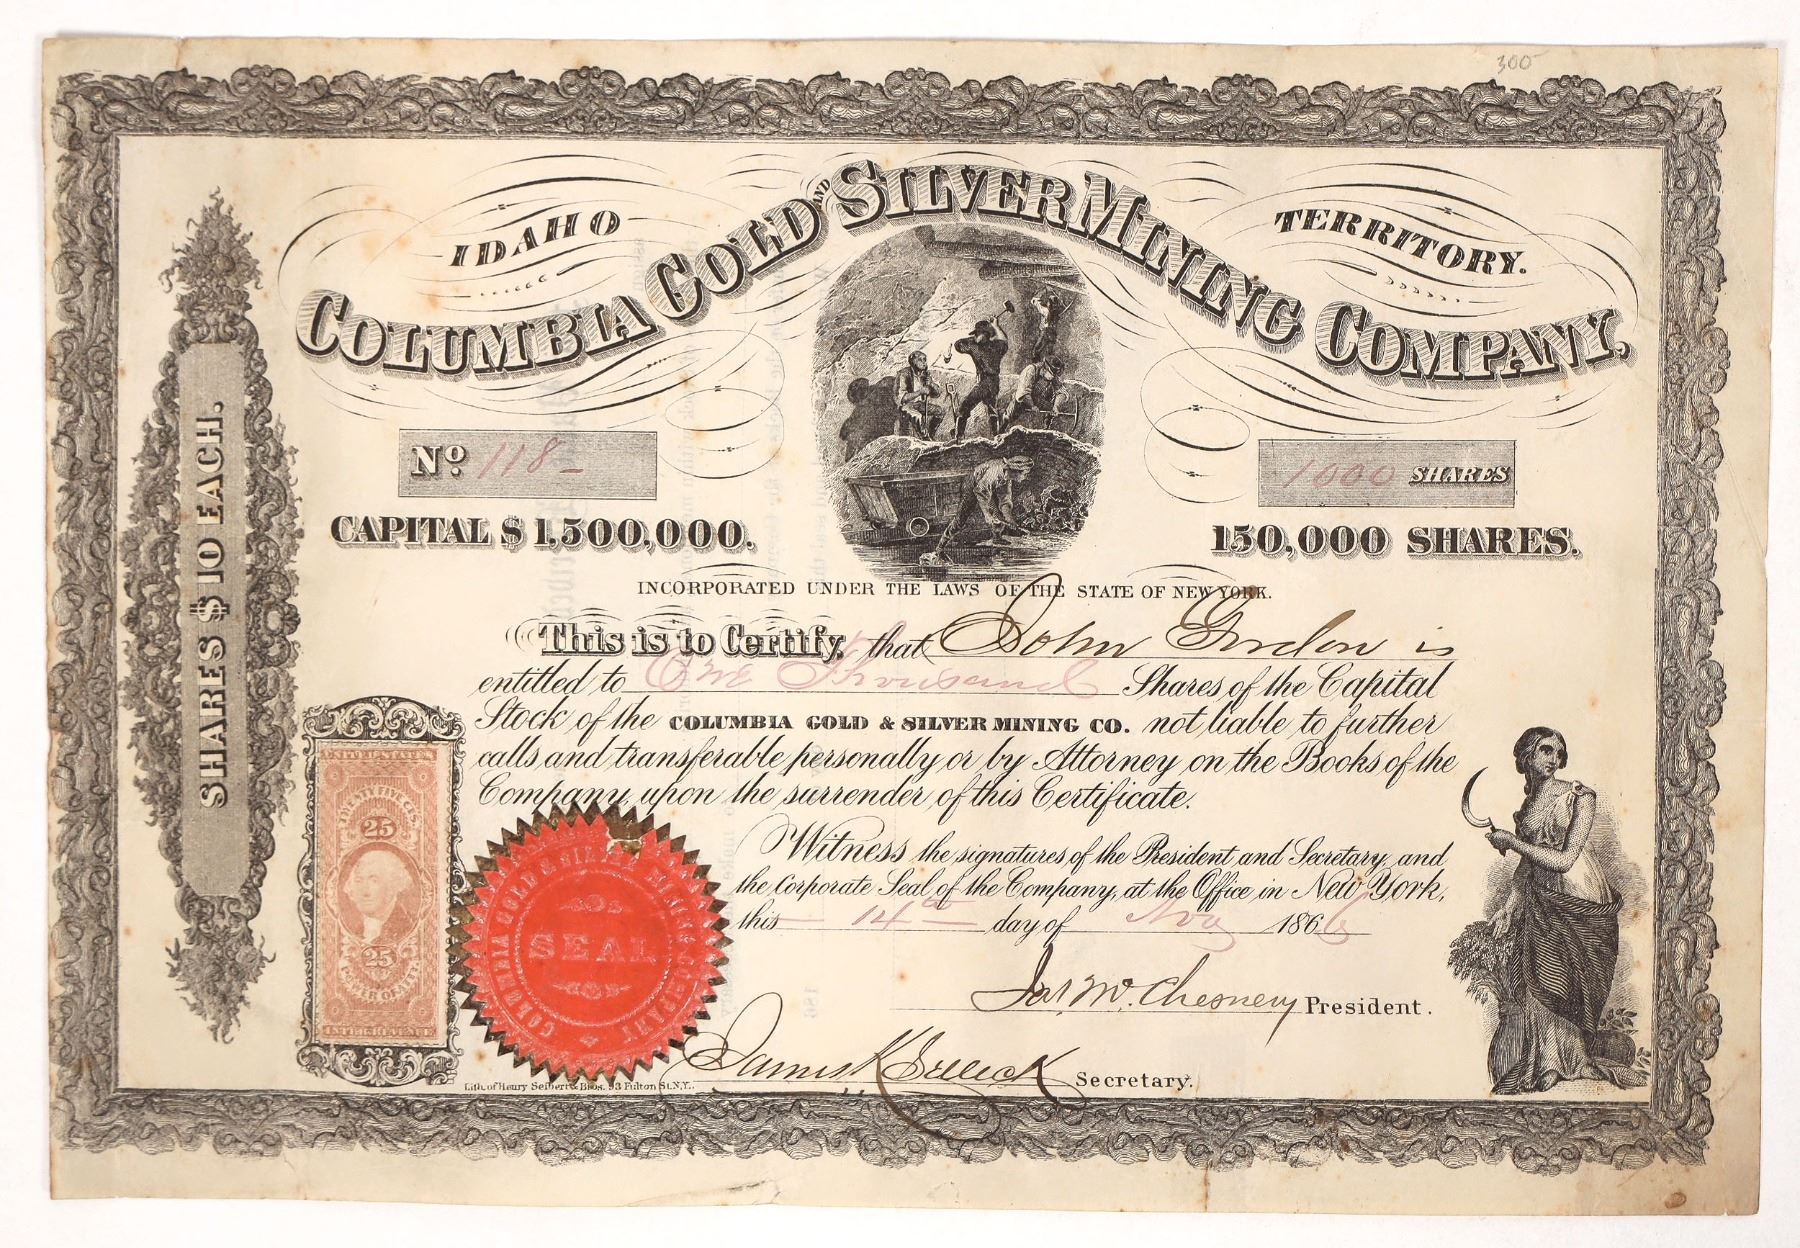 300
IDAHO TERRITORY.
COLUMBIA GOLD AND SILVER MINING COMPANY,
No. 118 -
1000 SHARES
CAPITAL $1,500,000.
150,000 SHARES.
SHARES $10 EACH.
INCORPORATED UNDER THE LAWS OF THE STATE OF NEW YORK.
This is to Certify, that John Gordon is
entitled to One Thousand Shares of the Capital
Stock of the COLUMBIA GOLD & SILVER MINING CO. not liable to further
calls and transferable personally or by Attorney on the Books of the
Company, upon the surrender of this Certificate.
Witness the signatures of the President and Secretary, and
the Corporate Seal of the Company, at the Office in New York,
this 14th day of Nov 1866
Jas. W. Chesney President.
Secretary.
UNITED STATES
TWENTY FIVE CTS.
25
25
POWER OF ATT'Y
INTER. REVENUE
COLUMBIA GOLD & SILVER MINING COMPANY
SEAL
Lith. of Henry Seibert & Bros. 93 Fulton St. N.Y.